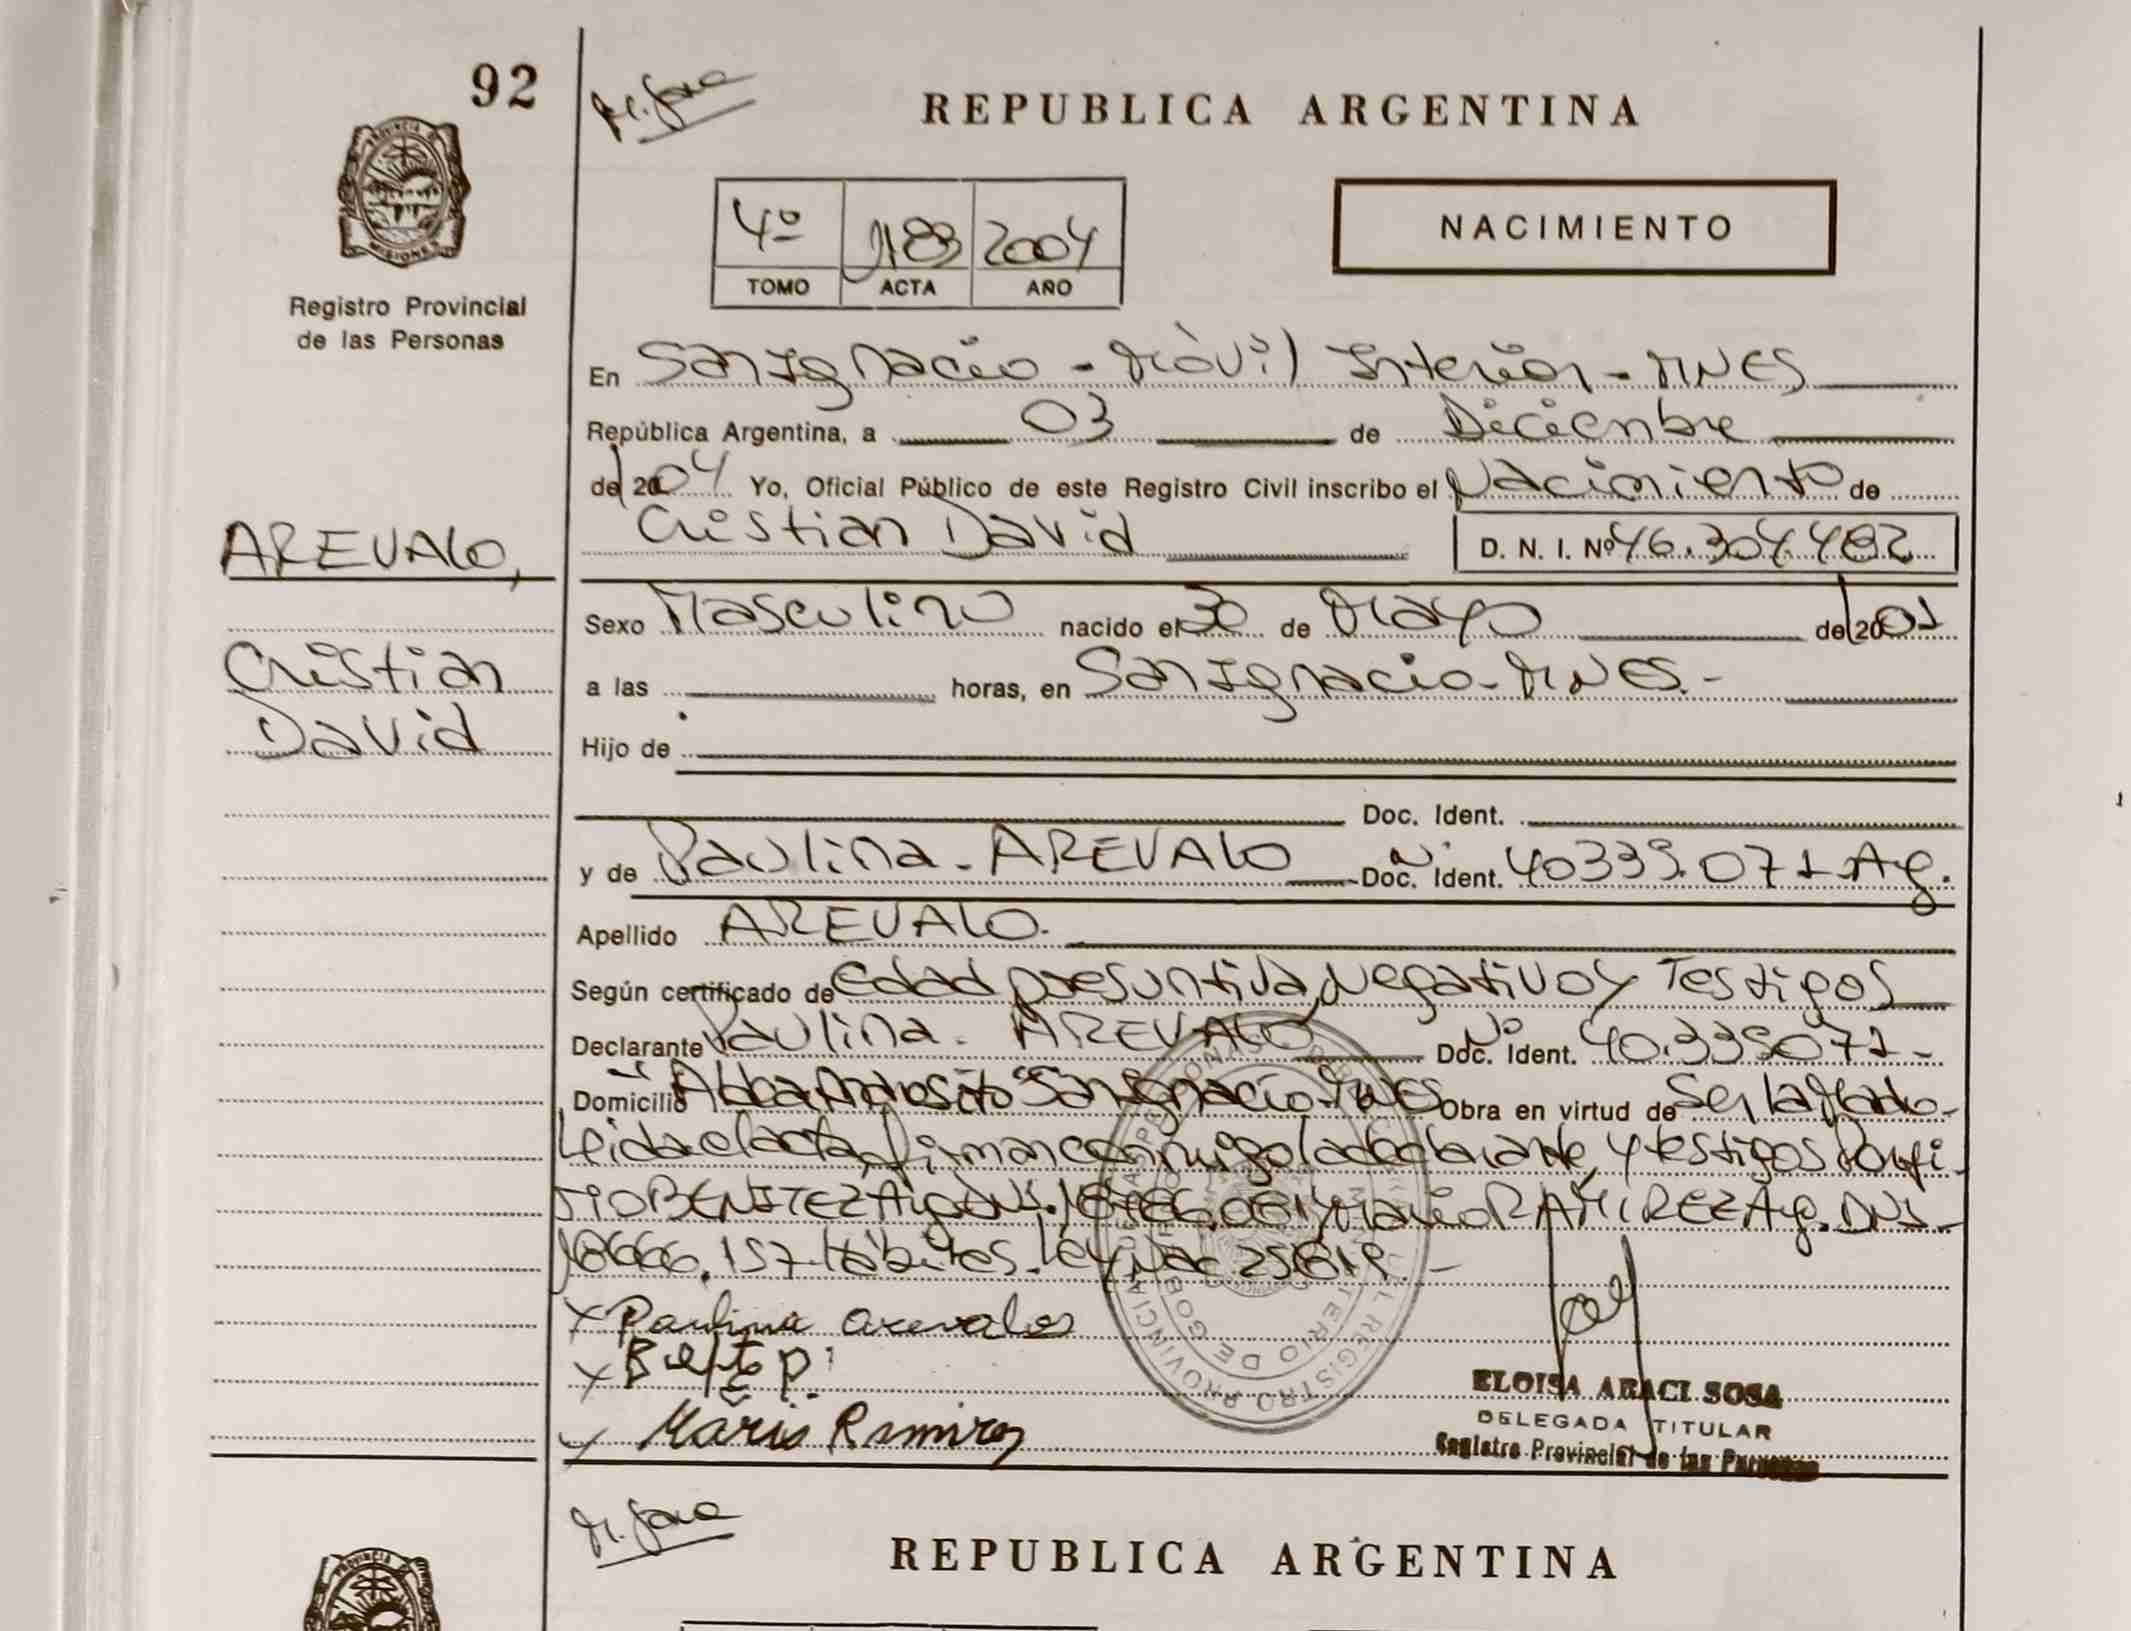 92
M. Jara
REPUBLICA ARGENTINA
PROVINCIA DE
MISIONES
4º 1183 2004
TOMO ACTA AÑO
NACIMIENTO
Registro Provincial
de las Personas
En San Ignacio - Móvil Interior - MNES
República Argentina, a 03 de Diciembre
del 2004 Yo, Oficial Público de este Registro Civil inscribo el Nacimiento de
Cristian David D. N. I. Nº 46.304.482
AREVALO,
Cristian
David
Sexo Masculino nacido el 30 de Mayo del 2001
a las horas, en San Ignacio - MNES.-
Hijo de
Doc. Ident.
y de Paulina. AREVALO Doc. Ident. 40339.071 Arg.
Apellido AREVALO.
Según certificado de Edad presuntiva, Negativo y Testigos
Declarante Paulina. AREVALO Doc. Ident. 40.339071-
Domicilio San Ignacio - MNES Obra en virtud de
Leida el acta, firman conmigo la declarante, y testigos
BENITEZ Arg. DNI. y Mario RAMIREZ Arg. DNI-
18666.157. Hábiles. Ley Nac 25819.-
x Paulina Arevalos
x
x Mario Ramirez
ELOISA ARACI SOSA
DELEGADA TITULAR
Registro Provincial de las Personas
M. Jara
REPUBLICA ARGENTINA